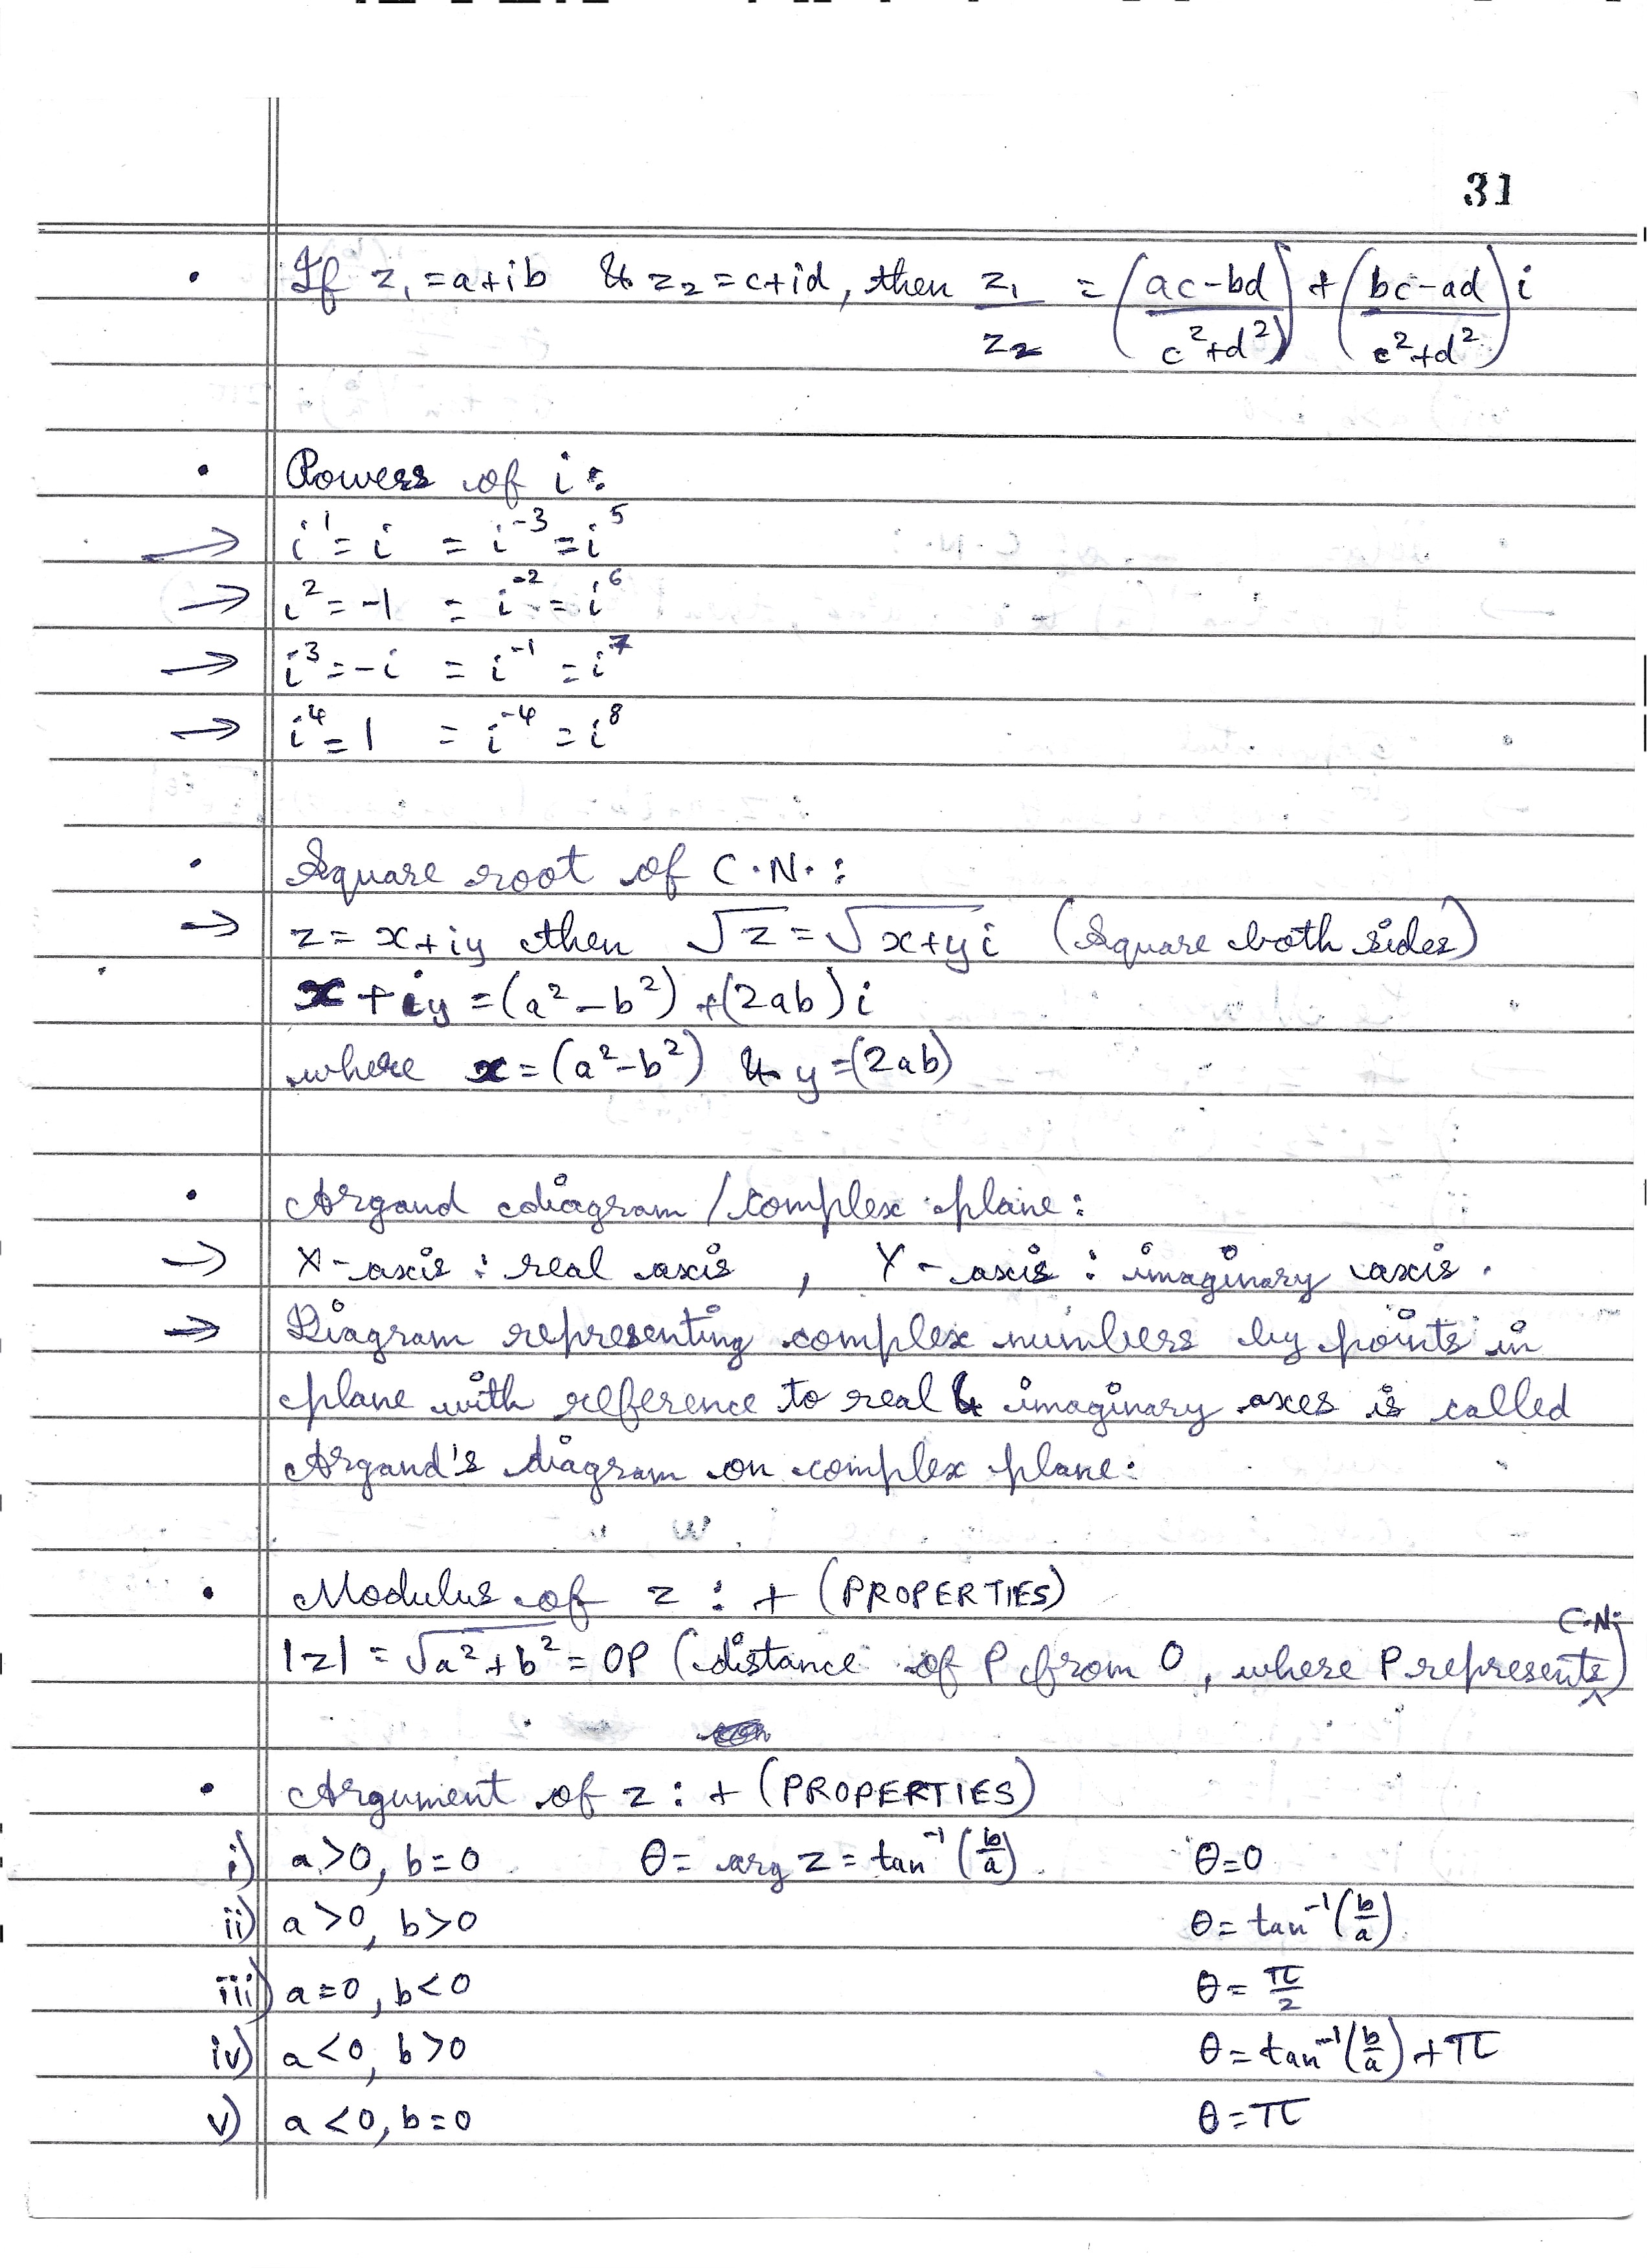 31
• If z₁ = a+ib & z₂ = c+id, then z₁/z₂ = ((ac-bd)/(c²+d²)) + ((bc-ad)/(c²+d²)) i
• Powers of i :
→ i¹ = i = i⁻³ = i⁵
→ i² = -1 = i⁻² = i⁶
→ i³ = -i = i⁻¹ = i⁷
→ i⁴ = 1 = i⁻⁴ = i⁸
• Square root of C.N. :
→ z = x+iy then √z = √x+yi (Square both sides)
x + iy = (a² - b²) + (2ab) i
where x = (a² - b²) & y = (2ab)
• Argand diagram / complex plane :
→ X-axis : real axis , Y-axis : imaginary axis .
→ Diagram representing complex numbers by points in
plane with reference to real & imaginary axes is called
Argand's diagram on complex plane.
• Modulus of z : + (PROPERTIES)
|z| = √a²+b² = OP (distance of P from O, where P represents C.N.)
• Argument of z : + (PROPERTIES)
i) a>0, b=0 θ = arg z = tan⁻¹(b/a) θ=0
ii) a>0, b>0 θ = tan⁻¹(b/a)
iii) a=0, b<0 θ = π/2
iv) a<0, b>0 θ = tan⁻¹(b/a) + π
v) a<0, b=0 θ = π